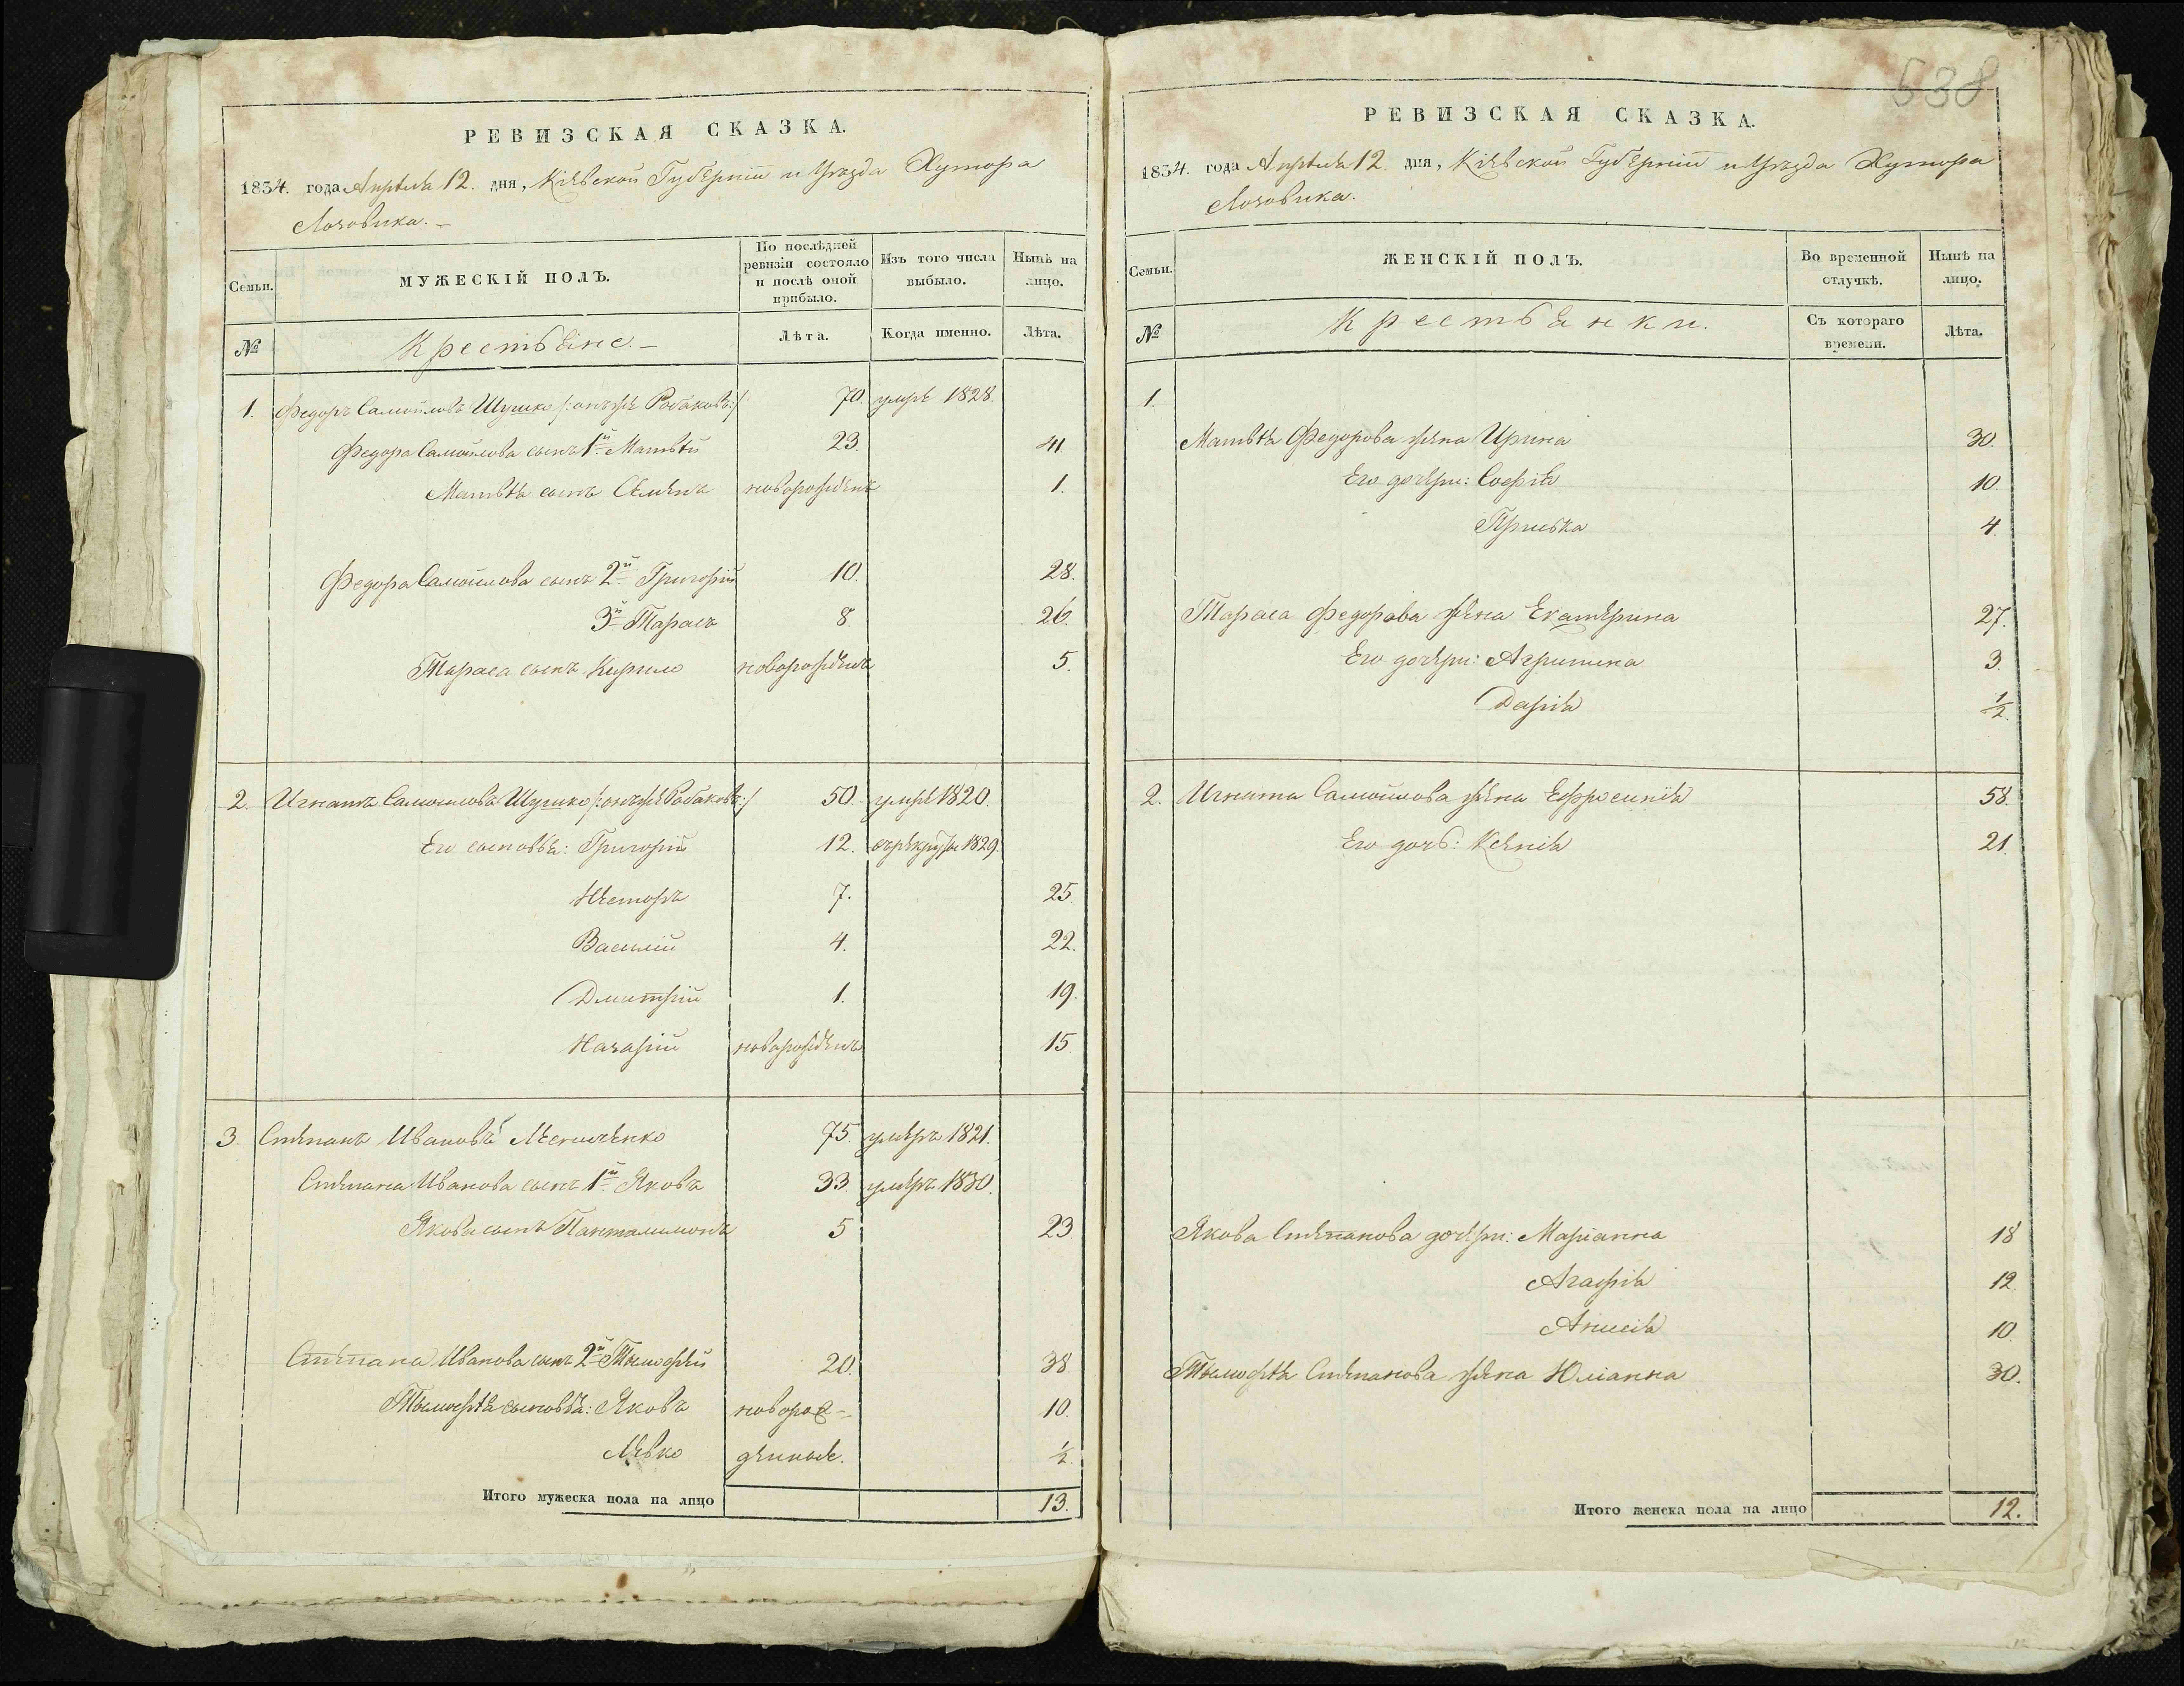 538
РЕВИЗСКАЯ СКАЗКА.
1834. года Апрѣля 12. дня, Кіевской Губерніи и Уѣзда Хутора
Лозовика.
Семьи.
МУЖЕСКІЙ ПОЛЪ.
По послѣдней ревизіи состояло и послѣ оной прибыло.
Изъ того числа выбыло.
Нынѣ на лицо.
№
Крестьяне.
Лѣта.
Когда именно.
Лѣта.
1. Федоръ Самойловъ Шушко /:онъ же Рабаковъ:/ 70. умре 1828.
Федора Самойлова сынъ 1й Матвѣй 23. 41
Матвѣя сынъ Семенъ новорожденъ 1.
Федора Самойлова сынъ 2й Григорій 10. 28.
3й Тарасъ 8 26.
Тараса сынъ Кирило новорожденъ 5.
2. Игнатъ Самойловъ Шушко /:онъ же Рабаковъ:/ 50. умре 1820.
Его сыновья: Григорій 12. 1829.
Несторъ 7. 25
Василій 4. 22.
Дмитрій 1. 19.
Назарій новорожденъ 15
3. Степанъ Ивановъ 75. умеръ 1821.
Степана Иванова сынъ 1й Яковъ 33. умеръ 1830.
Якова сынъ Пантелимонъ 5 23
Степана Иванова сынъ 2й Тымофей 20. 38
Тымофѣя сыновья: Яковъ новорож- 10.
Левко денные. 1/2.
Итого мужеска пола на лицо 13.
РЕВИЗСКАЯ СКАЗКА.
1834. года Апрѣля 12 дня, Кіевской Губерніи и Уѣзда Хутора
Лозовика.
Семьи.
ЖЕНСКІЙ ПОЛЪ.
Во временной отлучкѣ.
Нынѣ на лицо.
№
Крестьянки.
Съ котораго времени.
Лѣта.
1.
Матвѣя Федорова жена Ирина 30.
Его дочери: Софія 10.
Приська 4.
Тараса Федорова жена Екатерина 27.
Его дочери: Агрипина 3.
Дарія 1/2.
2. Игната Самойлова жена Ефросинія 58.
Его дочь: Ксенія 21
Якова Степанова дочери: Маріанна 18
Агафія 12.
Анисія 10.
Тымофѣя Степанова жена Юліанна 30.
Итого женска пола на лицо 12.